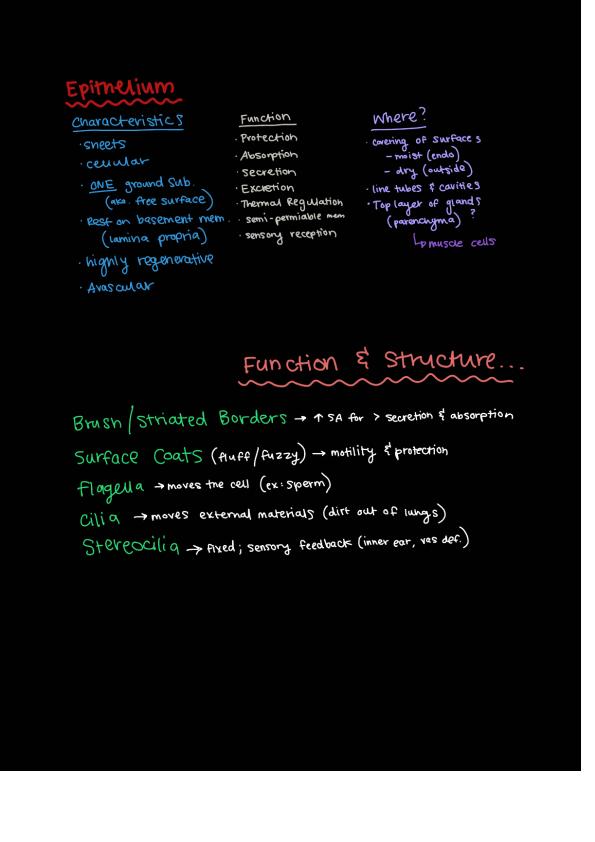 Epithelium
Characteristics
· sheets
· cellular
· ONE ground sub.
(aka. free surface)
· Rest on basement mem.
(lamina propria)
· highly regenerative
· Avascular
Function
· Protection
· Absorption
· secretion
· Excretion
· Thermal Regulation
· semi-permiable mem
· sensory reception
Where?
· covering of surfaces
- moist (endo)
- dry (outside)
· line tubes & cavities
· Top layer of glands
(parenchyma) ?
↳ muscle cells
Function & Structure...
Brush/Striated Borders → ↑ SA for > secretion & absorption
Surface Coats (fluff/fuzzy) → motility & protection
Flagella → moves the cell (ex: sperm)
Cilia → moves external materials (dirt out of lungs)
Stereocilia → fixed; sensory feedback (inner ear, vas def.)